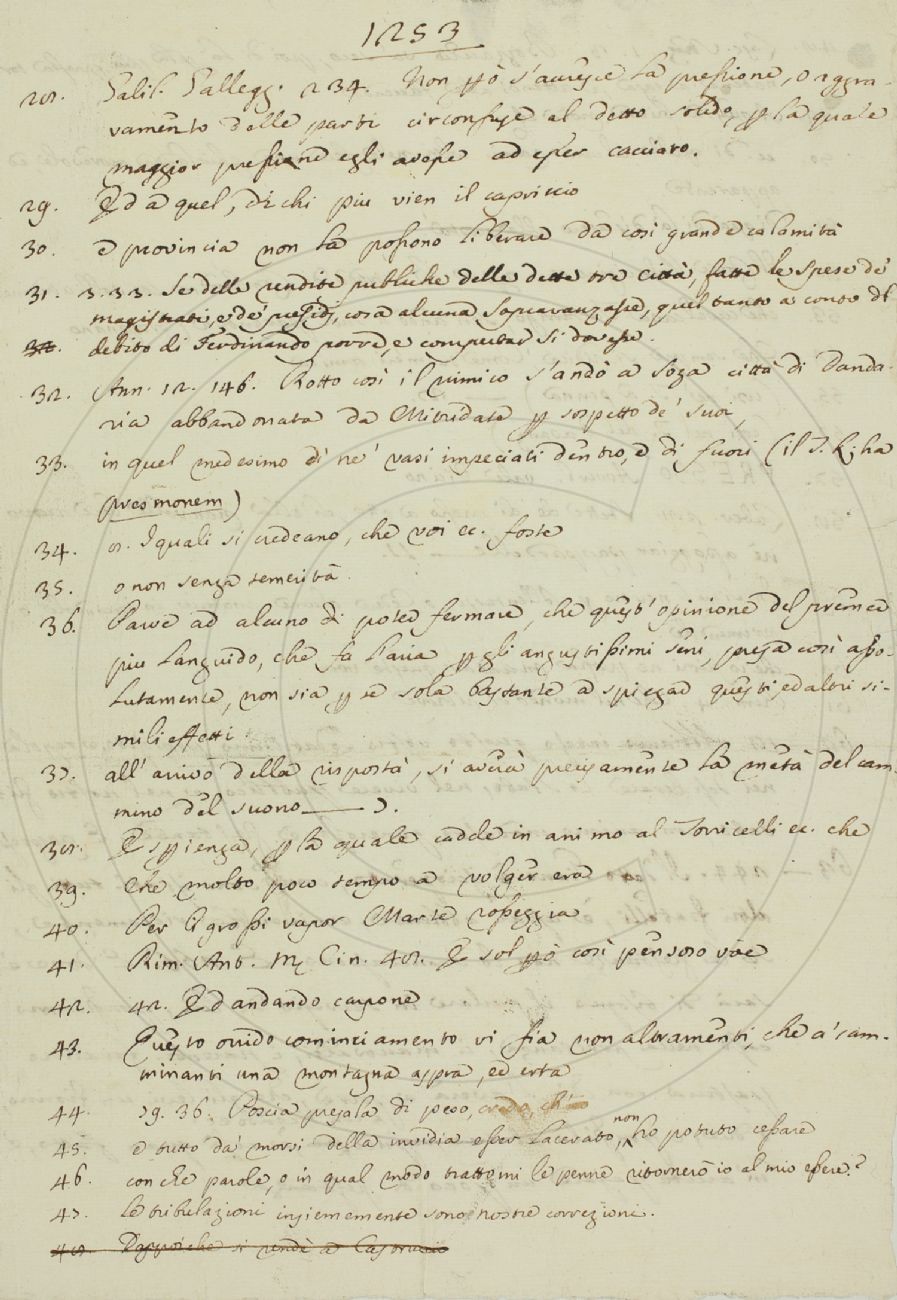 1253
28. Galil. Gallegg. 234. Non però s'accresce la pressione, o aggra-
vamento delle parti circonfuse al detto solido, p la quale
maggior pressione egli avesse ad esser cacciato.
29. Ed a quel, di chi più vien il capriccio
30. e provincia non la possono liberare da così grande calamità
31. 3.33. Se delle rendite pubbliche delle dette tre città, fatte le spese de'
magistrati, e de' presidj, cosa alcuna sopravanzasse, quel tanto a conto del
debito di Ferdinando porre, e computar si dovesse.
32. Ann. 12. 146. Rotto così il nimico s'andò a Soza città di Danda-
ria abbandonata da Mitridate p sospetto de' suoi,
33. in quel medesimo dì ne' vasi impeciati dentro, e di fuori (il T. L. ha
preomonem)
34. 8. I quali si credeano, che voi ec. foste
35. o non senza temerità
36. Parve ad alcuno di poter fermare, che quest' opinione del premere
più languido, che fa l'aria p gli angustissimi seni, presa così asso-
lutamente, non sia p se sola bastante a spiegar questi ed altri si-
mili effetti
37. all' arrivo della risposta, si avrà precisamente la metà del cam-
mino del suono 7.
38. Esperienza, p la quale cadde in animo al Torricelli ec. che
39. Che molto poco tempo a volger era
40. Per li grossi vapor Marte rosseggia
41. Rim. Ant. M. Cin. 48. E sol però così pensoso vae
42. 42. Ed andando carpone
43. Questo orrido cominciamento vi fia non altramenti, che a' cam-
minanti una montagna aspra, ed erta
44. 79. 36. Poscia presala di peso, credo, ch'io
45. e tutto da' morsi della invidia esser lacerato, non ho potuto cessare
46. con che parole, o in qual modo trattomi le penne ritornerò io al mio essere?
47. le tribulazioni insiememente sono nostre correzioni.
48. Dappoichè si rendè a Castruccio